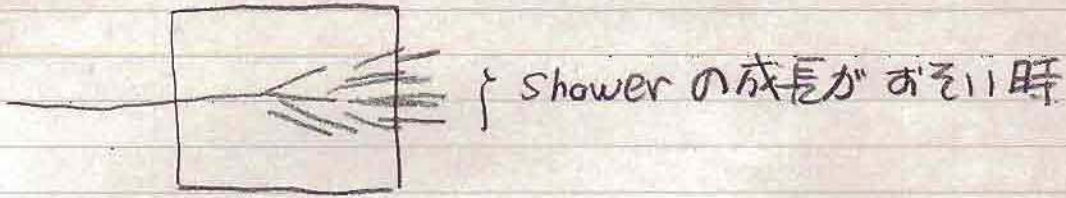 } showerの成長がおそい時